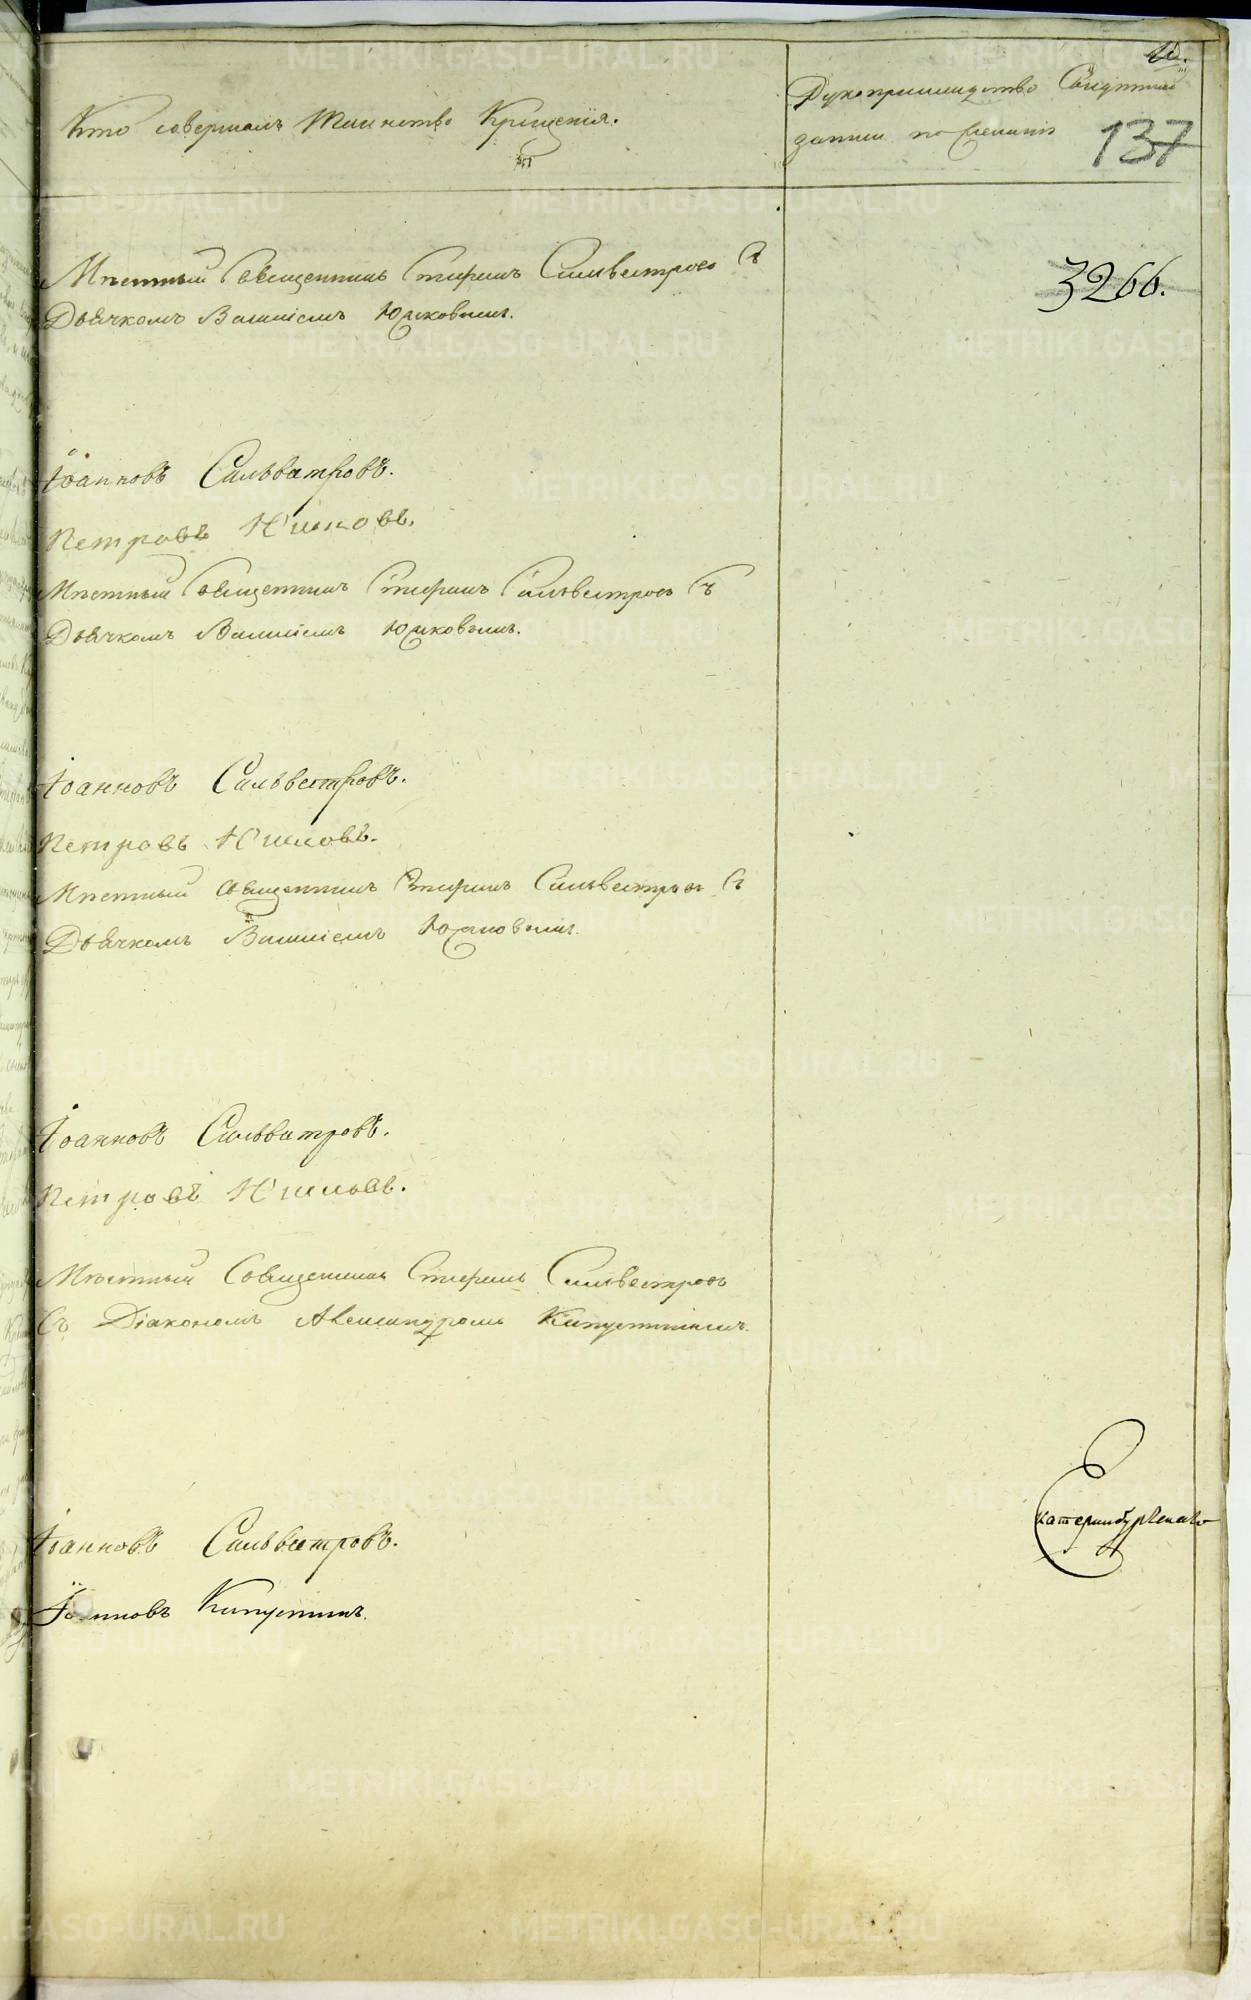 10.
Кто совершалъ Таинство Крещенія.
Рукоприкладство Свидѣтелей
записи по желанію
137
Мѣстный Священникъ Стефанъ Сильвестровъ Съ
Дьячкомъ Василіемъ Юшковымъ.
3266.
Іоанновъ Сильвестровъ.
Петровъ Юшковъ.
Мѣстный Священникъ Стефанъ Сильвестровъ Съ
Дьячкомъ Василіемъ Юшковымъ.
Іоанновъ Сильвестровъ.
Петровъ Юшковъ.
Мѣстный Священникъ Стефанъ Сильвестровъ Съ
Дьячкомъ Василіемъ Юшковымъ.
Іоанновъ Сильвестровъ.
Петровъ Юшковъ.
Мѣстный Священникъ Стефанъ Сильвестровъ
Съ Діакономъ Александромъ Капустинымъ.
Екатеринбургскаго
Іоанновъ Сильвестровъ.
Іоанновъ Капустинъ.
METRIKI.GASO-URAL.RU